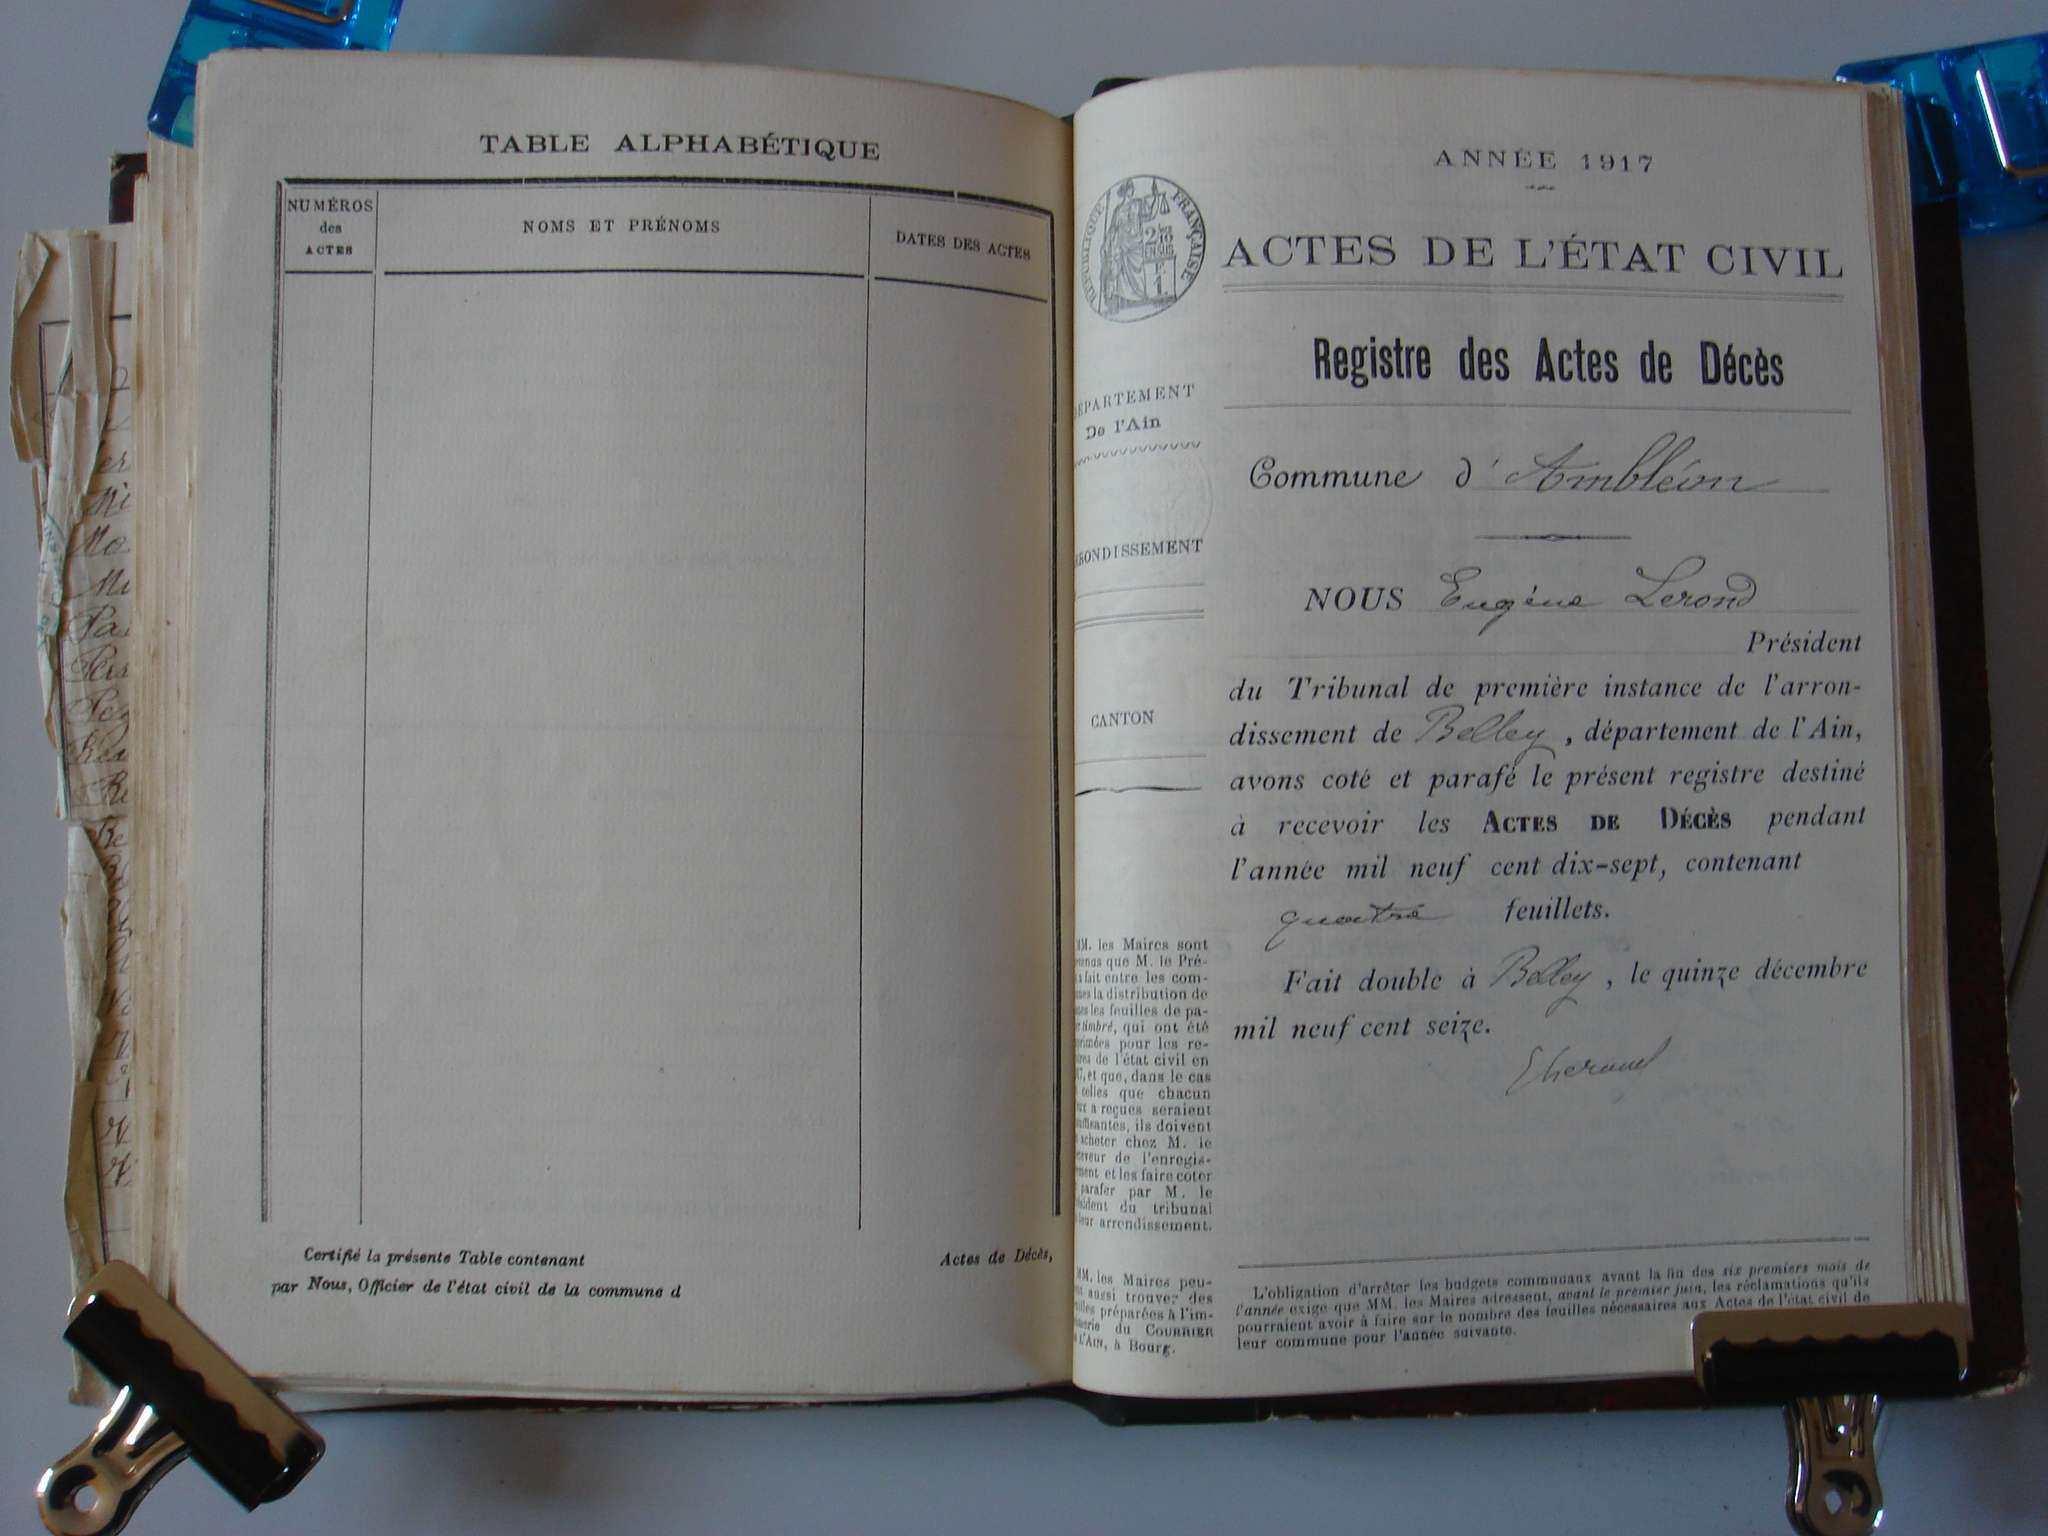 TABLE ALPHABÉTIQUE
NUMÉROS
des
ACTES
NOMS ET PRÉNOMS
DATES DES ACTES
Certifié la présente Table contenant Actes de Décès,
par Nous, Officier de l'état civil de la commune d
ANNÉE 1917
RÉPUBLIQUE FRANÇAISE
ACTES DE L'ÉTAT CIVIL
Registre des Actes de Décès
DÉPARTEMENT
De l'Ain
Commune d'Ambléon
RONDISSEMENT
NOUS Eugène Lerond
Président
du Tribunal de première instance de l'arron-
dissement de Belley, département de l'Ain,
CANTON
avons coté et parafé le présent registre destiné
à recevoir les ACTES DE DÉCÈS pendant
l'année mil neuf cent dix-sept, contenant
quatre feuillets.
Fait double à Belley, le quinze décembre
mil neuf cent seize.
MM. les Maires sont
que M. le Pré-
fait entre les com-
la distribution de
les feuilles de pa-
timbré, qui ont été
pour les re-
de l'état civil en
et que, dans le cas
celles que chacun
a reçues seraient
ils doivent
acheter chez M. le
de l'enregis-
et les faire coter
parafer par M. le
du tribunal
leur arrondissement.
MM. les Maires peu-
aussi trouver des
préparées à l'im-
du COURRIER
L'AIN, à Bourg.
L'obligation d'arrêter les budgets communaux avant la fin des six premiers mois de
l'année exige que MM. les Maires adressent, avant le premier juin, les réclamations qu'ils
pourraient avoir à faire sur le nombre des feuilles nécessaires aux Actes de l'état civil de
leur commune pour l'année suivante.